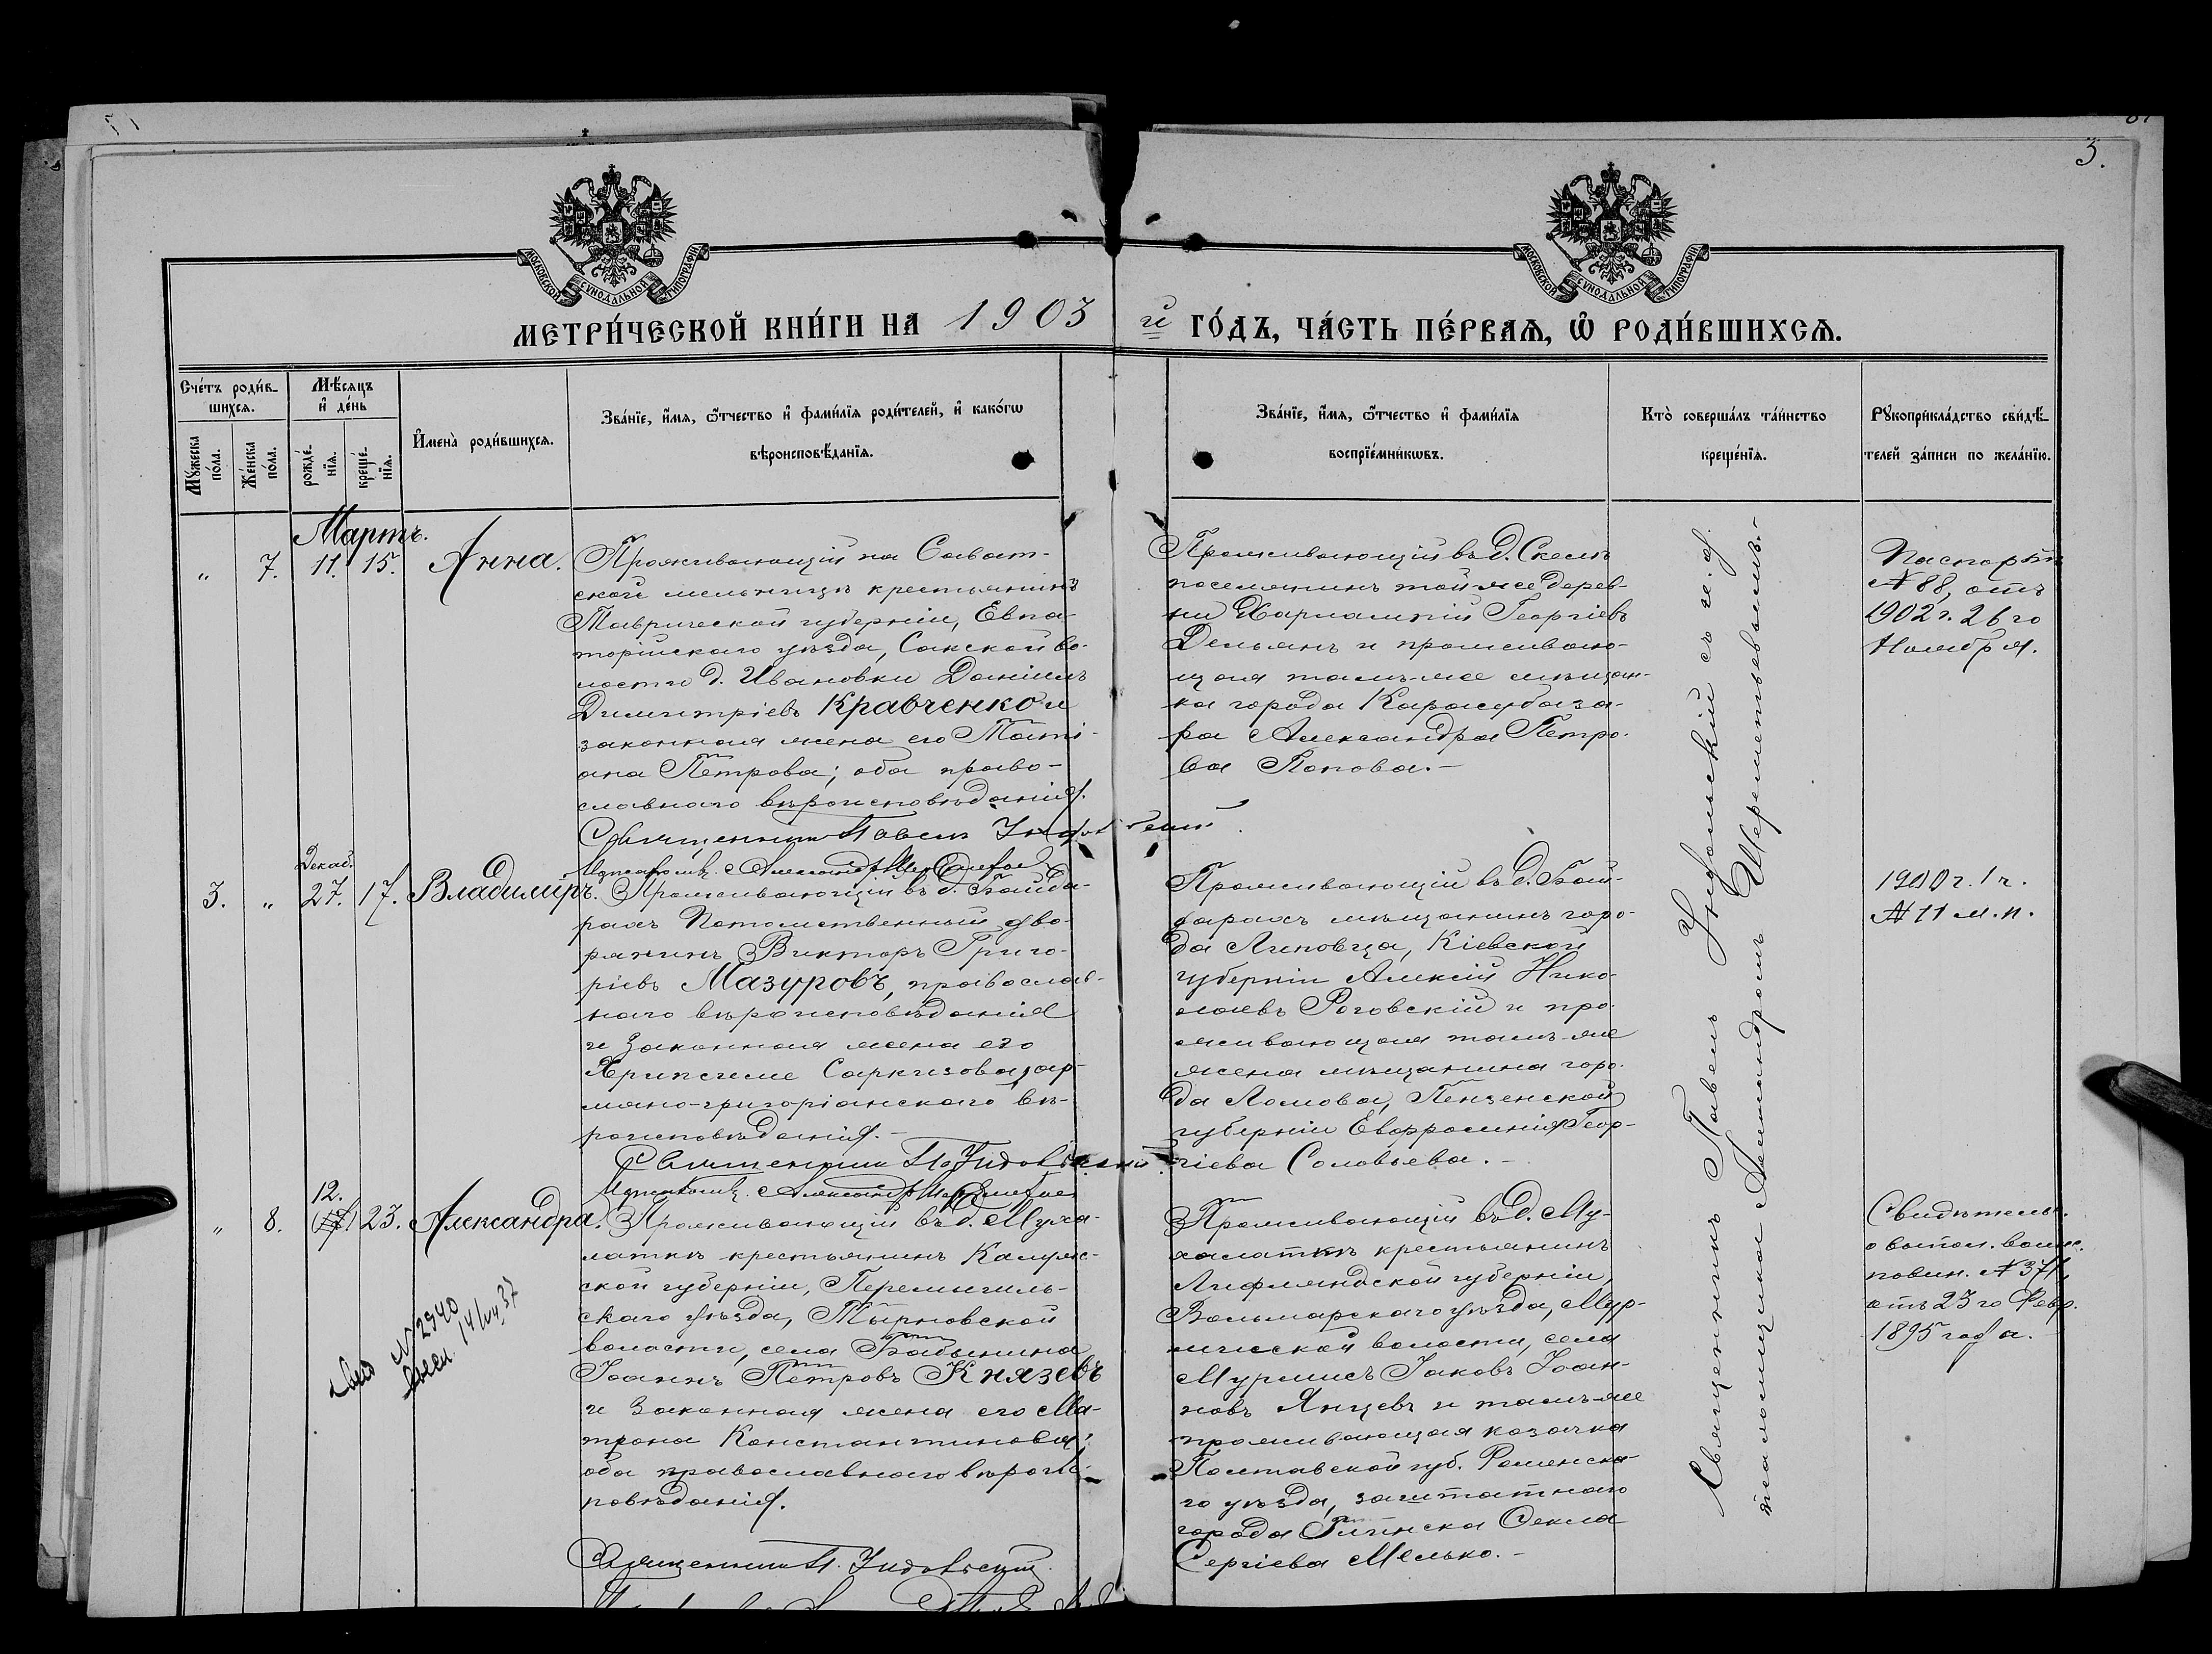 3.
МОСКОВСКОЙ СѴНОДАЛЬНОЙ ТИПОГРАФІИ
МОСКОВСКОЙ СѴНОДАЛЬНОЙ ТИПОГРАФІИ
МЕТРИ́ЧЕСКОЙ КНИ́ГИ НА 1903 й ГО́ДЪ, ЧА́СТЬ ПЕ́РВАѦ, Ѡ РОДИ́ВШИХСѦ.
Сче́тъ роди́в-
шихсѧ.
Мꙋ́жеска
по́ла.
Же́нска
по́ла.
Мѣ́сѧцъ
и҆ де́нь
рожде́-
нїѧ.
креще́-
нїѧ.
И҆мена̀ роди́вшихсѧ.
Зва́нїе, и҆́мѧ, ѻ҆́тчество и҆ фами́лїѧ роди́телей, и҆ како́гѡ
вѣроисповѣ́данїѧ.
Зва́нїе, и҆́мѧ, ѻ҆́тчество и҆ фами́лїѧ
воспрїе́мникѡвъ.
Кто̀ соверша́лъ та́инство
креще́нїѧ.
Рꙋкоприкла́дство свидѣ́-
телей за́писи по жела́нїю.
Мартъ.
„ 7. 11. 15. Анна.
Проживающій на Сават-
ской мельницѣ крестьянинъ
Таврической губерніи, Евпа-
торійскаго уѣзда, Сакской во-
лости д. Ивановки Даніилъ
Димитріевъ Кравченко и
законная жена его Таті-
ана Петрова; оба право-
славнаго вѣроисповѣданія.
Священникъ Павелъ Ундольскій.
Проживающій въ д. Скели
поселянинъ той же дерев-
ни Харлампій Георгіевъ
Дельянъ и проживаю-
щая тамъ-же мѣщан-
ка города Карасубаза-
ра Александра Петро-
ва Попова.—
Паспортъ
№ 88, отъ
1902 г. 26 го
Ноября.
Декаб.
3. „ 27. 17. Владиміръ.
Проживающій въ д. Байда-
рахъ Потомственный дво-
рянинъ Викторъ Григо-
ріевъ Мазуровъ, православ-
наго вѣроисповѣданія
и законная жена его
Хрипсиме Саркизова, ар-
мяно-григоріанскаго вѣ-
роисповѣданія.—
Священникъ П. Ундольскій.
Проживающій въ д. Бай-
дарахъ мѣщанинъ горо-
да Липовца, Кіевской
губерніи Алексій Нико-
лаевъ Роговскій и про-
живающая тамъ-же
жена мѣщанина горо-
да Ломова, Пензенской
губерніи Евфросинія Геор-
гіева Соловьева.—
1900 г. 1 г.
№ 11 м. п.
12.
„ 8. (17) 23. Александра.
Проживающій въ д. Муха-
латкѣ крестьянинъ Калуж-
ской губерніи, Перемышль-
скаго уѣзда, Тырновской
волости, села Бабынина
Іоаннъ Петровъ Князевъ
и законная жена его Ма-
трона Константинова;
оба православнаго вѣроис-
повѣданія.
Священникъ П. Ундольскій.
Проживающій въ д. Му-
халаткѣ крестьянинъ
Лифляндской губерніи,
Вольмарскаго уѣзда, Мур-
мисской волости, села
Мурмисъ Іаковъ Іоан-
новъ Янцевъ и тамъ-же
проживающая козачка
Полтавской губ. Роменска-
го уѣзда, заштатнаго
города Глинска Фекла
Сергіева Мелько.—
Свидѣтельс.
о выпол. воин.
повин. № 371,
отъ 23 го Февр.
1895 года.
№ 2940
Священникъ Павелъ Ундольскій съ и. д.
псаломщика Александромъ Шереметьевымъ.—